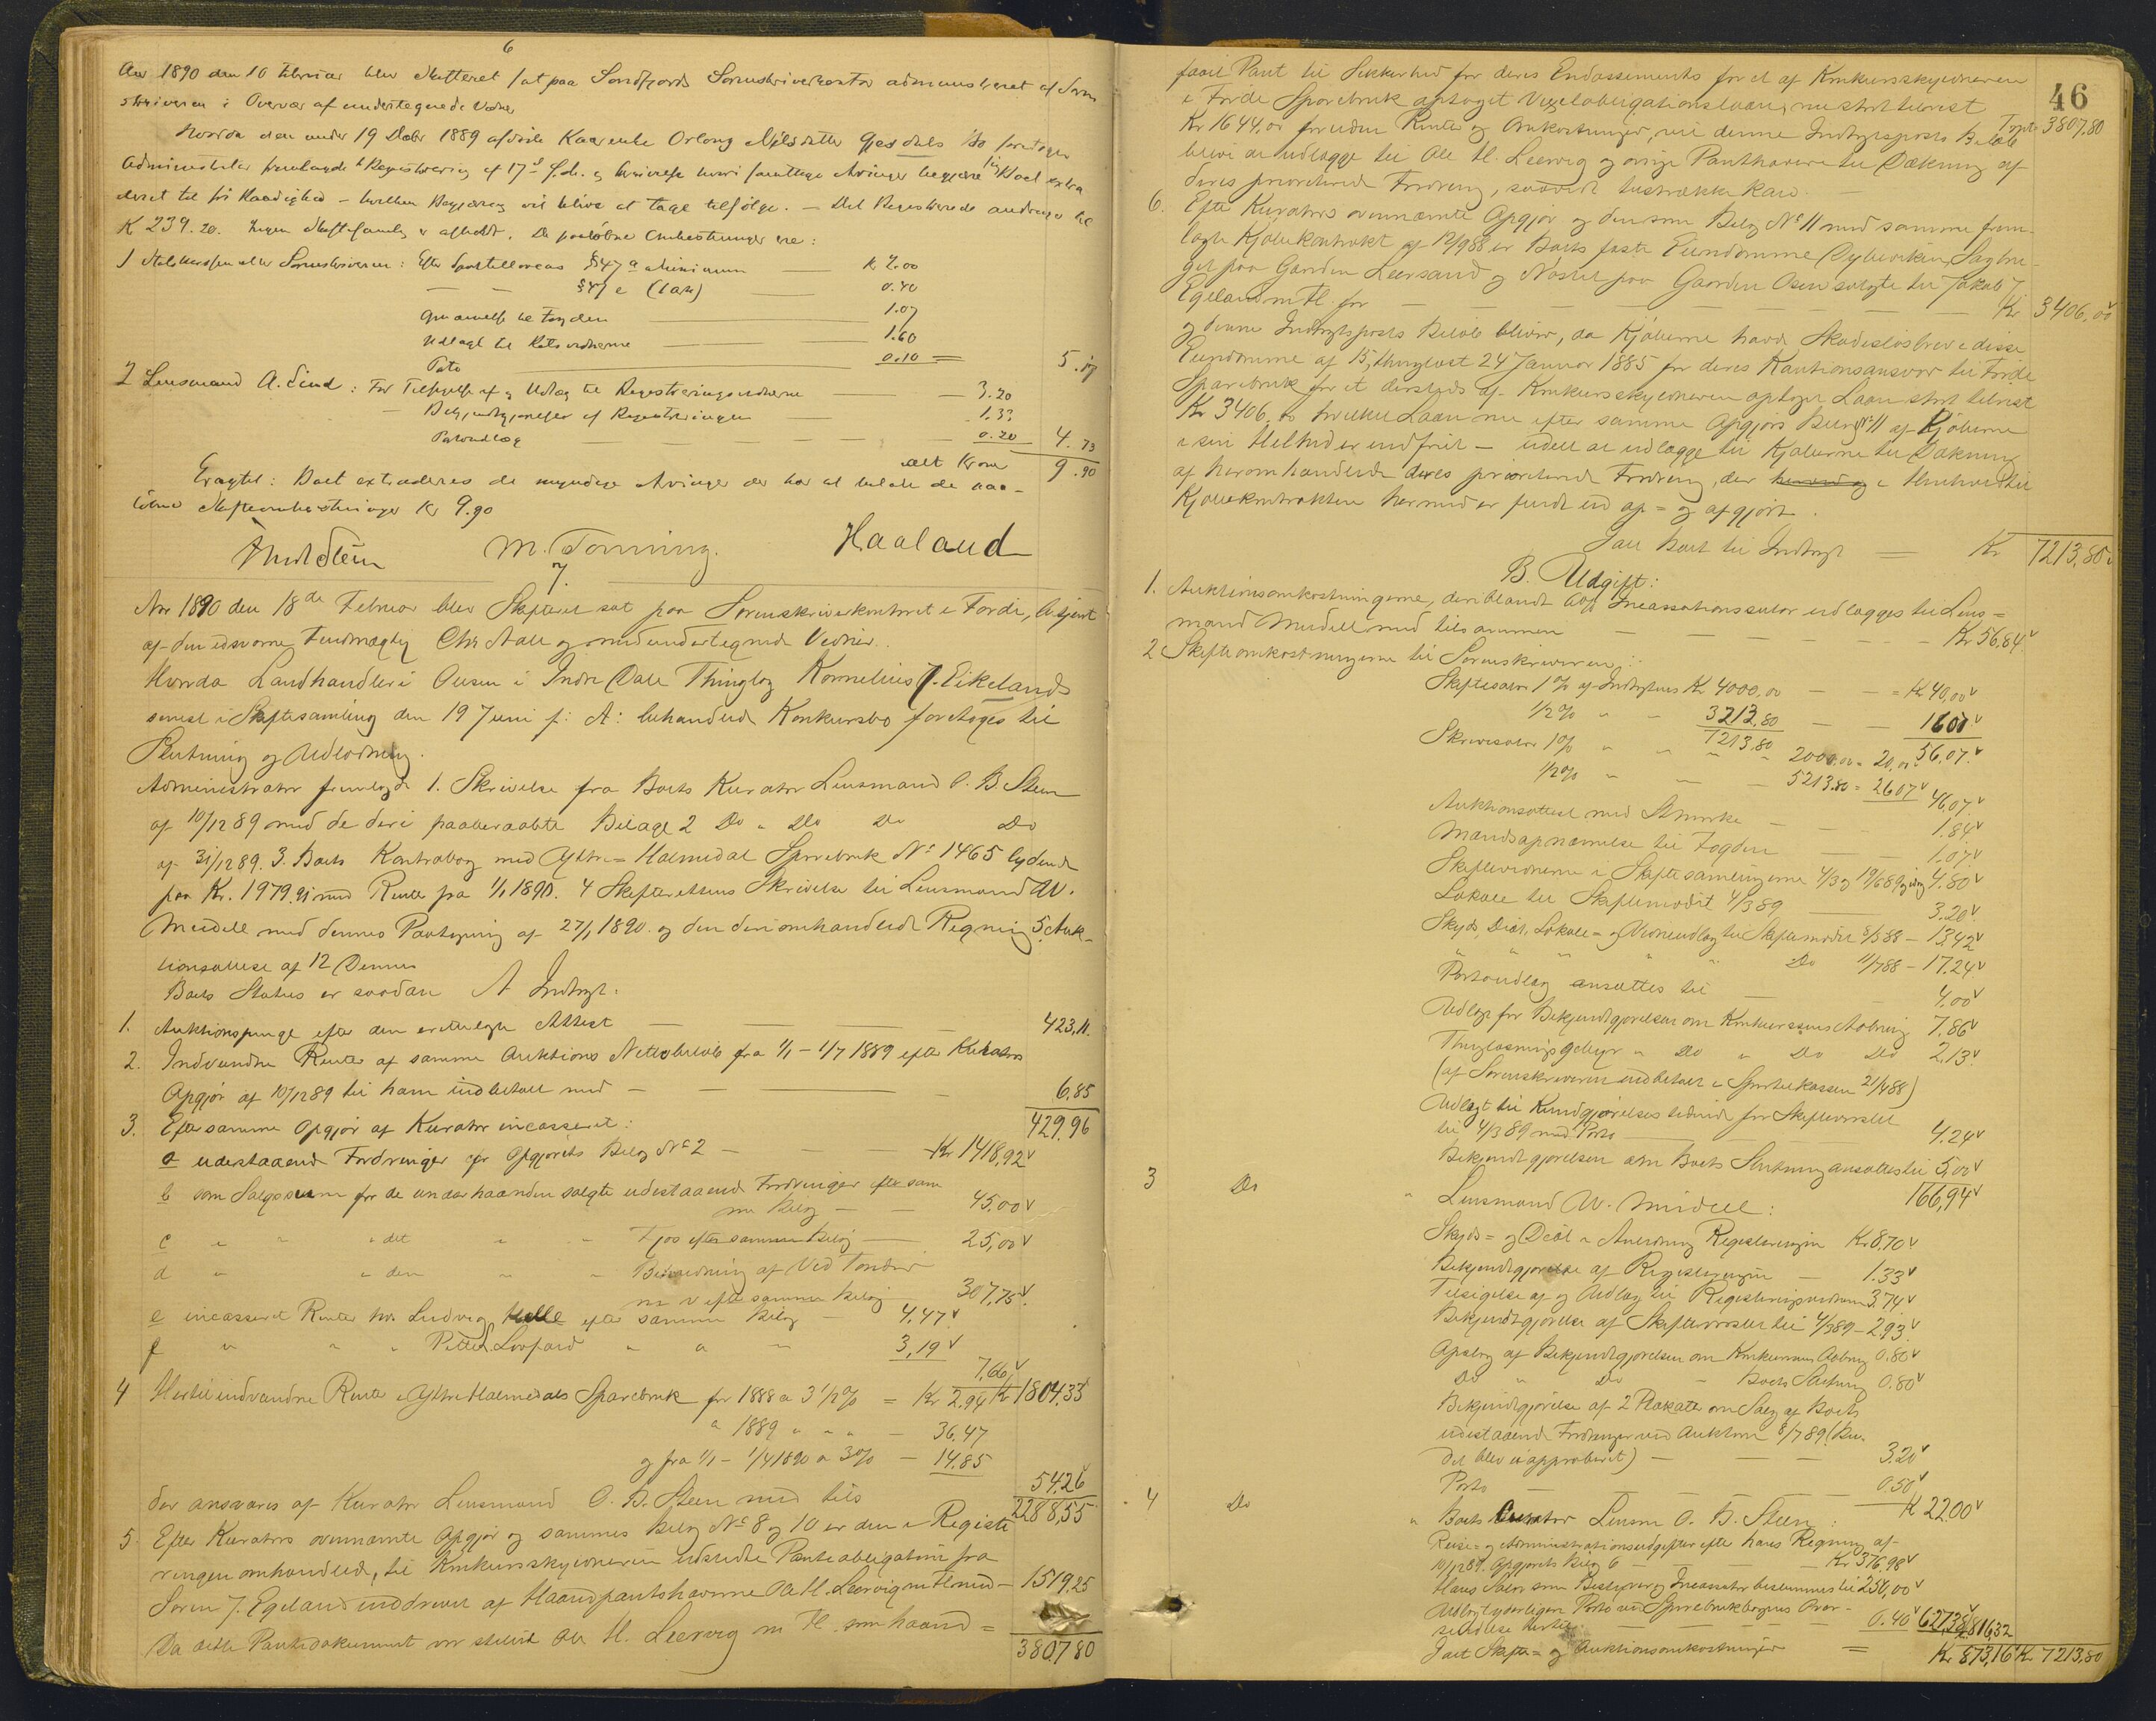 6
Aar 1890 den 10 Februar blev Skifteret sat paa Søndfjords Sorenskriverkontor administreret af Soren
skriveren i Overvær af undertegnede Vidner
Hvorda den under 19 Decbr 1889 afdøde Kaarenke Orlong Nilsdatter Gjesdals Bo foretoges
Administrator fremlagde Registrering af 17de s.m. og
deret til fri Raadighed – hvilken Begjæring vil blive at tage tilfølge. – Det Registrerede andrager til
K 239.20. Ingen Skiftesamling er afholdt. De paaløbne Omkostninger ere:
1 Sorenskriveren: Efter Sportelloven §47 a minimum — K 2.00
— — §47 c — 0.40
Opnævnelse til Fogden — 1.07
Udlagt til Retsvidnerne — 1.60
Porto — 0.10 = 5.17
2 Lensmand A. Sind: For Tilsigelse af og Udlæg til Registreringsvidnerne — 3.20
— Bekjendtgjørelse af Registreringen 1.33
Portoudlæg — 0.20 4.73
alt Kroner 9.90
Eragtet: Boet extraderes de myndige Arvinger der har at betale de paa-
løbne Skifteomkostninger Kr 9.90
M. Tonning. Haaland
7.
Aar 1890 den 18de Februar blev Skifteret sat paa Sorenskriverkontoret i Førde, betjent
af den edsvorne Fuldmægtig Chr Aall og medundertegnede Vidner.
Hvorda Landhandler i Aasen i Indre Dale Thinglag Kornelius J. Eikelands
senest i Skiftesamling den 19 Juni f: A: behandlede Konkursbo foretoges til
Slutning og Udlodning.
Administrator fremlagde 1. Skrivelse fra Boets Kurator Lensmand O. B Steen
af 10/12 89 med de deri paaberaabte Bilage 2 Do " Do Do Do
af 31/12 89. 3. Boets Kontrabog med Yttre-Holmedal Sparebank No 1465 lydende
paa Kr. 1979.91 med Rente fra 1/1 1890. 4 Skifterettens Skrivelse til Lensmand W.
Meidell med dennes Paategning af 27/1 1890 og den deri omhandlede Regning 5. Auk-
tionsattest af 12 Dennes
Boets Status er saadan A Indtægt.
1. Auktionspenge efter den erettelagte Attest — 423,11.
2. Indvundne Renter af samme Auktions Nettobeløb fra 1/1 – 1/7 1889 efter Kurators
Opgjør af 10/12 89 til ham indbetalt med — 6,85
429,96
3. Efter samme Opgjør af Kurator incasseret:
a udestaaende Fordringer efter Opgjørets Bilag No 2 — Kr 1418,92
b som Salgssum for de under haanden solgte udestaaende Fordringer efter sam
me Bilag — 45.00
c " " " det " " Fjøs efter samme Bilag — 25,00
d " " den " " Beholdning af Ved
efter samme Bilag 307,75
e incasseret Renter hos Ludvig Halle efter samme Bilag — 4,47
f " " " " " " 3,19
7,66 Kr 1804.33
4 Hertil indvundne Renter i Yttre Holmedals Sparebank for 1888 a 3 1/2 % = Kr 2.94
" 1889 " " " — 36.47
og fra 1/1 – 1/4 1890 a 3% — 14.85
54.26
der ansvares af Kurator Lensmand O. B. Steen med tils 2288,55
5 Efter Kurators ovennævnte Opgjør og sammes Bilag No 8 og 10 er den i Registe
ringen omhandlede, til Konkursskyldneren udstedte Panteobligation fra
Søren J. Egeland inddrevet af Haandpantshaverne Ole H. Leervig m Fl med – 1519,25
Da dette Pantedokument var stillet Ole H. Leervig m Fl. som haand = 3807.80
46
faaet Pant til Sikkerhed for deres Endossements for et af Konkursskyldneren
i Førde Sparebank optaget Vexelobligationslaan, nu stort tilrest
Kr 1644,00 foruden Renter og Omkostninger, vil denne Indtægtsposts Beløb Tspt 3807.80
blive at udlægge til Ole H. Leervig og øvrige Panthavere til Dækning af
deres prioriterede Fordring, saavidt tilstrække kan.
6. Efter Kurators ovennævnte Opgjør og den som Bilag No 11 med samme frem-
lagte Kjøbekontrakt af 12/9 88 er Boets faste Eiendomme Dybeviken, Sagbru-
get paa Gaarden Leersand og Nøstet paa Gaarden Osen solgte til Jakob J
Egeland m Fl. for — Kr 3406,00
og denne Indtægtsposts Beløb bliver, da Kjøberne havde Skadesløsbrev i disse
Eiendomme af 15, thinglæst 24 Januar 1885 for deres Kautionsansvar til Førde
Sparebank for et dersteds af Konkursskyldneren optaget Laan stort tilrest
Kr 3406,00 hvilket Laan nu efter samme Opgjørs Bilag No 11 af Kjøberne
i sin Helhed er indfriet – udell at udlægge til Kjøberne til Dækning
af herom handlede deres prioriterede Fordring, der i Henhold til
Kjøbekontrakten hermed er fuldt ud op- og afgjort.
Ialt Boets til Indtægt = Kr 7213,80
B. Udgift:
1. Auktionsomkostningerne, deriblandt Incassationssalær udlægges til Lens=
mand Meidell med tilsammen — Kr 56,84
2 Skifteomkostningerne til Sorenskriveren:
Skiftesalær 1% af Indtægtens Kr 4000,00 — = Kr 40,00
1/2% " — 3213,80 — 1607
7213,80 56,07
Skriversalær 1% " " " 2000,00 = 20,00
1/2% " — 5213.80 = 2607 46,07
Auktionsattest med Stmrke — 1.84
Mandsopnævnelse til Fogden — 1.07
Skiftevidnerne i Skiftesamlingerne 4/3 og 19/6 89 og idag 4.80
Lokale til Skiftemødet 4/3 89 — 3.20
Skyds, Diæt, Lokale- og Vidneudlæg til Skiftemødet 5/5 88 – 13,42
" " " " " Do 11/7 88 – 17.24
Portoudlæg ansættes til — 4.00
Udlagt for Bekjendtgjørelsen om Konkursens Aabning 7.86
Thinglæsningsgebyr " Do " Do Do 2,13
(af Sorenskriveren indbetalt i Sportelkassen 21/4 88)
Udlagt til Kundgjørelsestidende for Skifteværslet
til 4/3 89 med Porto — 4.24
Bekjendtgjørelsen om Boets Slutning ansættes til 5,00
166,94
3 Do " Lensmand W. Meidell:
Skyds- og Diæt i Anledning Registeringen Kr 8,70
Bekjendtgjørelse af Registeringen — 1.33
Tilsigelse af og Udlæg til Registeringsvidnerne 3.74
Bekjendtgjørelse af Skifteværslet til 4/3 89 – 2.93
Opslag af Bekjendtgjørelsen om Konkursens Aabning 0.80
Do " Do " Boets Slutning 0.80
Bekjendtgjørelse af 2 Plakater om Salg af Boets
udestaaende Fordringer ved Auktion 8/7 89 (Bu-
det blev ei approberet) — 3.20
Porto — 0.50
Kr 22.00
4 Do " Boets Curator Lensm O. B. Steen:
Reise- og Administrationsudgifter efter hans Regning af
10/12 89 Opgjørets Bilag 6 — Kr 376,98
Hans Salær som Bestyrer og Incassator bestemmes til 250,00
Udlagt yderligere Porto ved Sparebankbogens Over-
sendelse hertil — 0.40 627,38 816,32
Ialt Skifte- og Auktionsomkostninger = Kr 873,16 Kr 7213,80